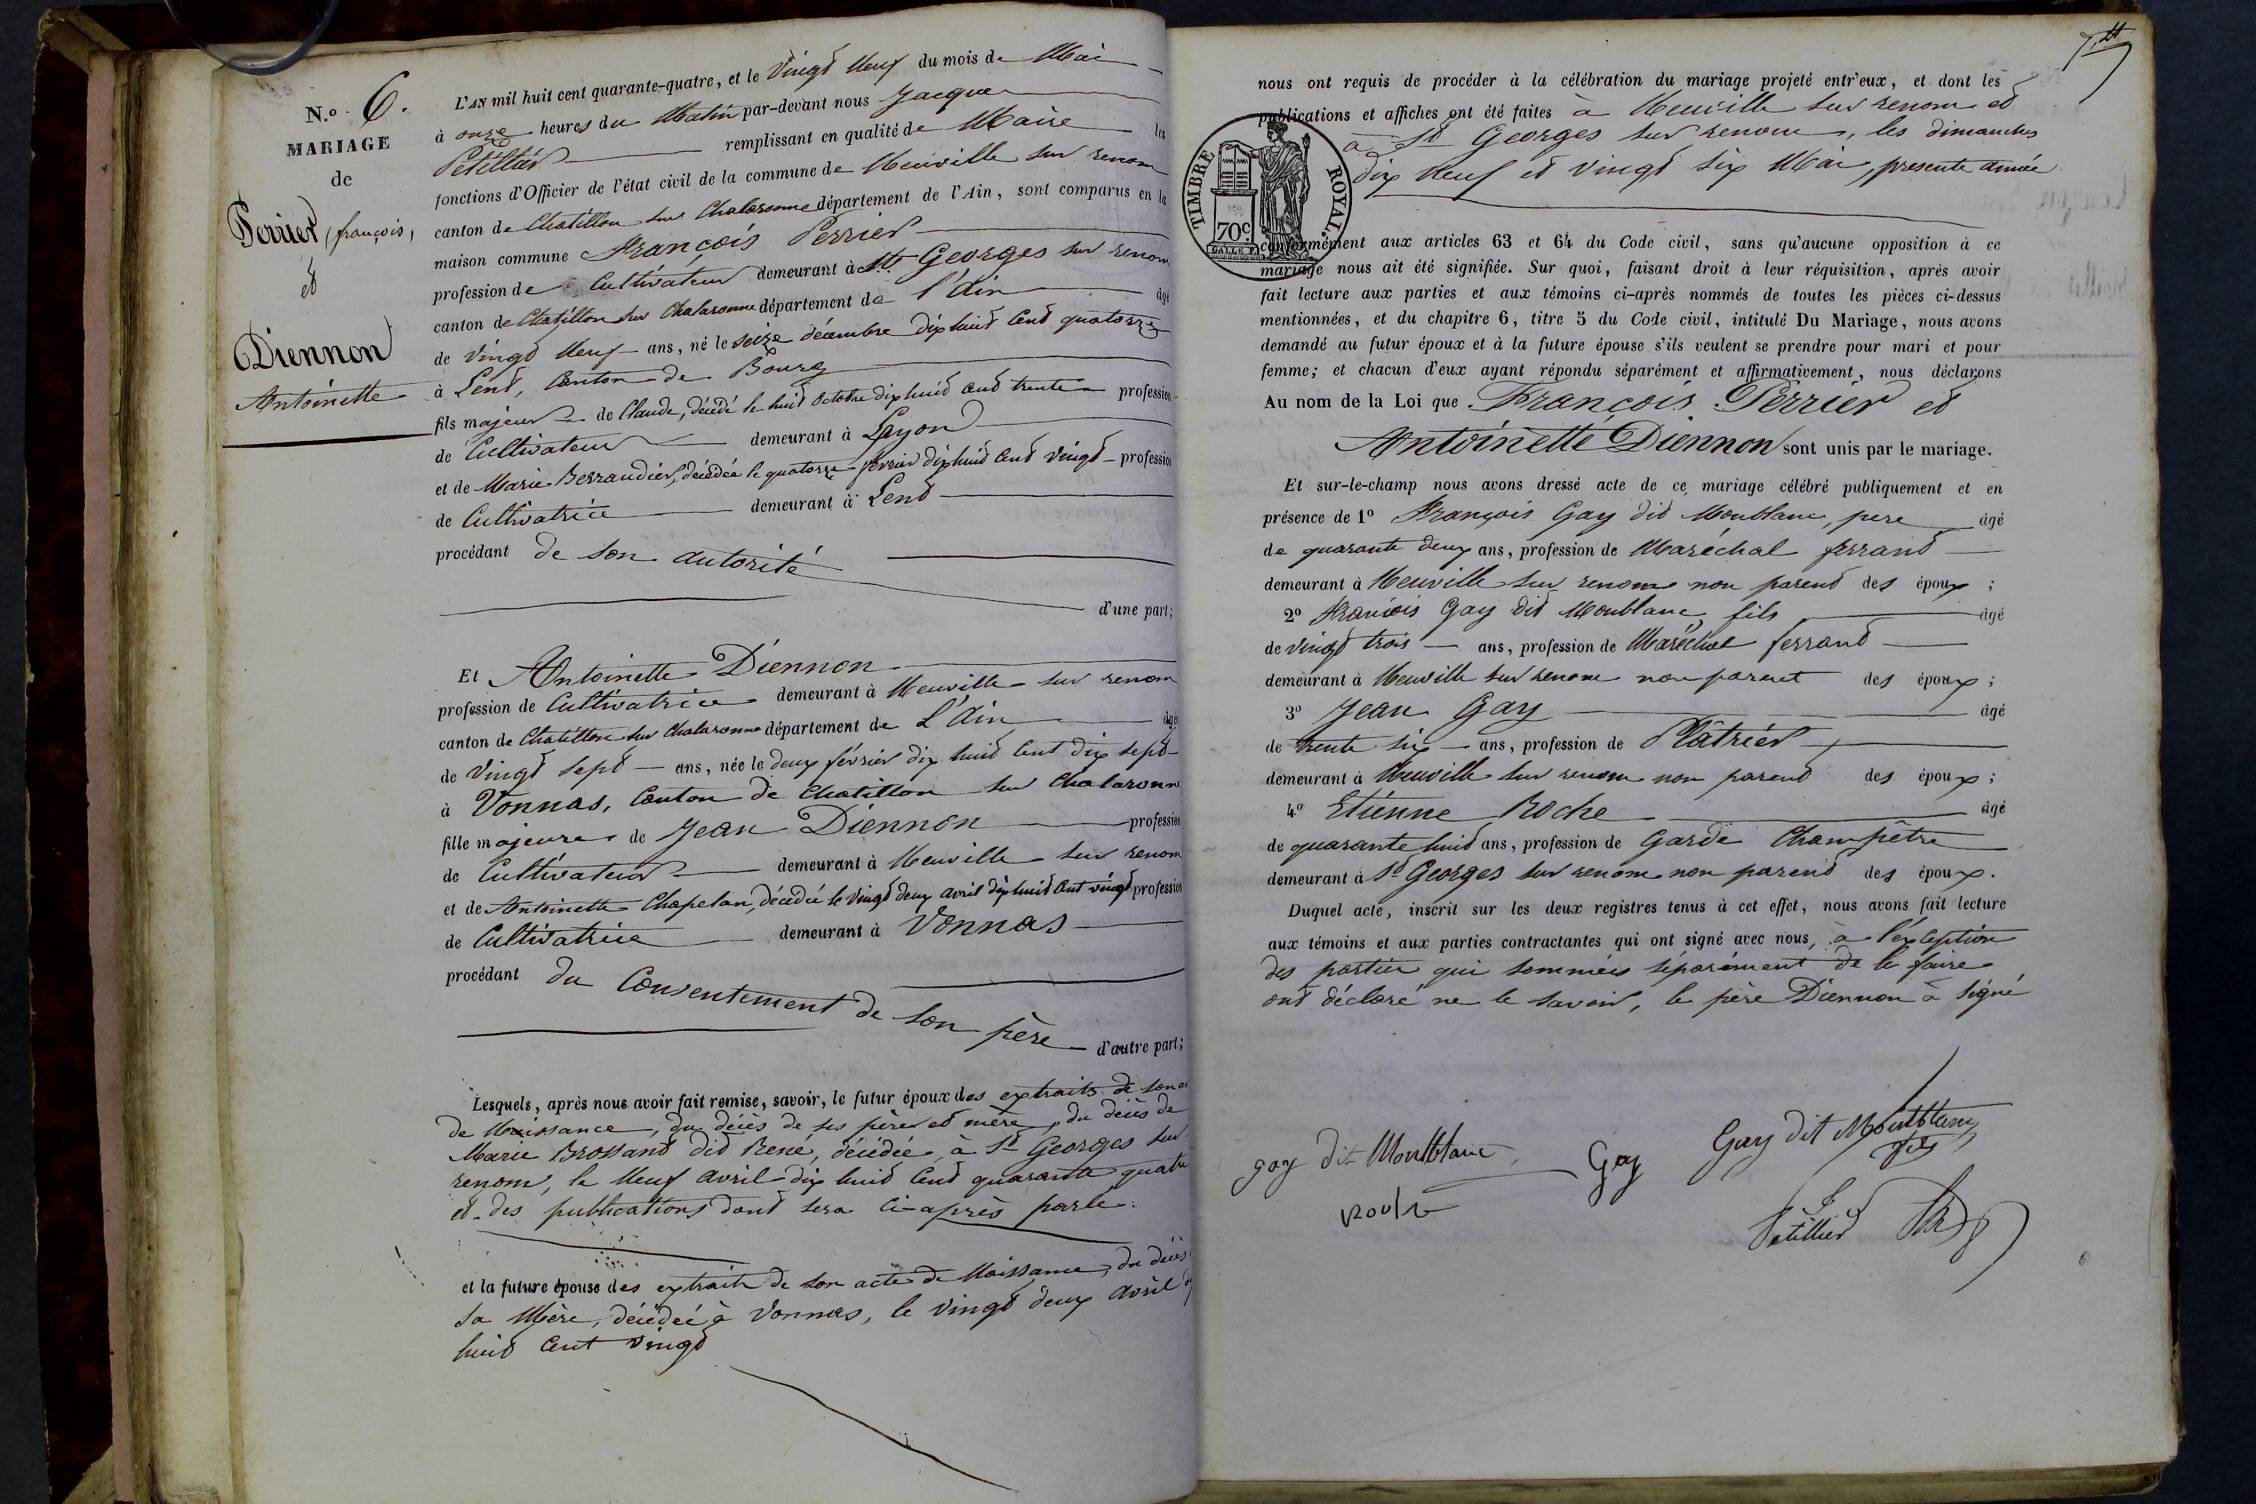 N.º 6.
MARIAGE
de
Perrier (françois)
et
Diennon
Antoinette
L'AN mil huit cent quarante-quatre, et le Vingt Neuf du mois de Mai
à onze heures du Matin par-devant nous Jacques
Petillier remplissant en qualité de Maire les
fonctions d'Officier de l'état civil de la commune de Neuville sur renom
canton de Chatillon sur Chalaronne département de l'Ain, sont comparus en la
maison commune François Perrier
profession de Cultivateur demeurant à St. Georges sur renom
canton de Chatillon sur Chalaronne département de l'Ain âgé
de Vingt Neuf ans, né le seize décembre dix huit Cent quatorze
à Lent, Canton de Bourg
fils majeur de Claude, décédé le huit octobre dix huit cent trente profession
de Cultivateur demeurant à Layon
et de Marie Berraudier, décédée le quatorze fevrier dix huit Cent Vingt profession
de Cultivatrice demeurant à Lent
procédant de son autorité
d'une part;
Et Antoinette Diennon
profession de Cultivatrice demeurant à Neuville sur renom
canton de Chatillon sur Chalaronne département de L'Ain âgée
de Vingt sept ans, née le deux février dix huit Cent dix sept
à Vonnas, Canton de Chatillon sur Chalaronne
fille majeure de Jean Diennon profession
de Cultivateur demeurant à Neuville sur renom
et de Antoinette Chapelan, décédée le Vingt deux avril dix huit Cent vingt profession
de Cultivatrice demeurant à Vonnas
procédant du Consentement de son père
d'autre part;
Lesquels, après nous avoir fait remise, savoir, le futur époux des extraits de son
de Naissance, du décès de ses père et mère, du décès de
Marie Brossand dit René, décédée à St Georges sur
renom, le Neuf avril dix huit Cent quarante quatre
et des publications dont sera Ci-après parlé.
et la future épouse des extraits de son acte de Naissance, du décès
sa Mère, décédée à Vonnas, le vingt deux avril
huit Cent Vingt
nous ont requis de procéder à la célébration du mariage projeté entr'eux, et dont les
publications et affiches ont été faites à Neuville sur renom et
à St Georges sur renom, les dimanches
dix Neuf et Vingt six Mai, presente année
TIMBRE ROYAL.
70c.
conformément aux articles 63 et 64 du Code civil, sans qu'aucune opposition à ce
mariage nous ait été signifiée. Sur quoi, faisant droit à leur réquisition, après avoir
fait lecture aux parties et aux témoins ci-après nommés de toutes les pièces ci-dessus
mentionnées, et du chapitre 6, titre 5 du Code civil, intitulé Du Mariage, nous avons
demandé au futur époux et à la future épouse s'ils veulent se prendre pour mari et pour
femme; et chacun d'eux ayant répondu séparément et affirmativement, nous déclarons
Au nom de la Loi que François Perrier et
Antoinette Diennon sont unis par le mariage.
Et sur-le-champ nous avons dressé acte de ce mariage célébré publiquement et en
présence de 1º François Gay dit Monblanc, pere âgé
de quarante deux ans, profession de Maréchal ferrand
demeurant à Neuville sur renom non parent des époux;
2º François Gay dit Monblanc, fils âgé
de vingt trois ans, profession de Maréchal ferrand
demeurant à Neuville sur renom non parent des époux;
3º Jean Gay âgé
de trente six ans, profession de Plâtrier
demeurant à Neuville sur renom non parent des époux;
4º Etienne Roche âgé
de quarante huit ans, profession de Garde Champêtre
demeurant à St Georges sur renom non parent des époux.
Duquel acte, inscrit sur les deux registres tenus à cet effet, nous avons fait lecture
aux témoins et aux parties contractantes qui ont signé avec nous, à l'exception
des parties qui sommées séparément de le faire
ont déclaré ne le savoir, le père Diennon à signé
gay dit Montblanc
Gay
Gay dit Montblanc
fils
Petillier